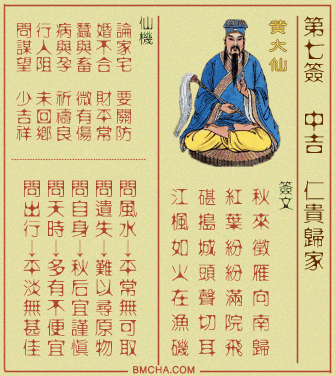 第七簽 中吉 仁貴歸家
黃大仙
簽文
秋來徵雁向南歸
紅葉紛紛滿院飛
碪搗城頭聲切耳
江楓如火在漁磯
仙機
論家宅 要關防
婚不合 財平常
蠶與畜 微有傷
病與孕 祈禱良
行人阻 未回鄉
問謀望 少吉祥
問風水→平常無可取
問遺失→難以尋原物
問自身→秋后宜謹慎
問天時→多有不便宜
問出行→平淡無甚佳
BMCHA.COM